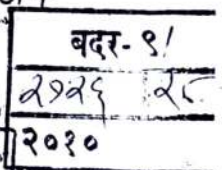 बदर-९/
२७२६ २८
२०१०